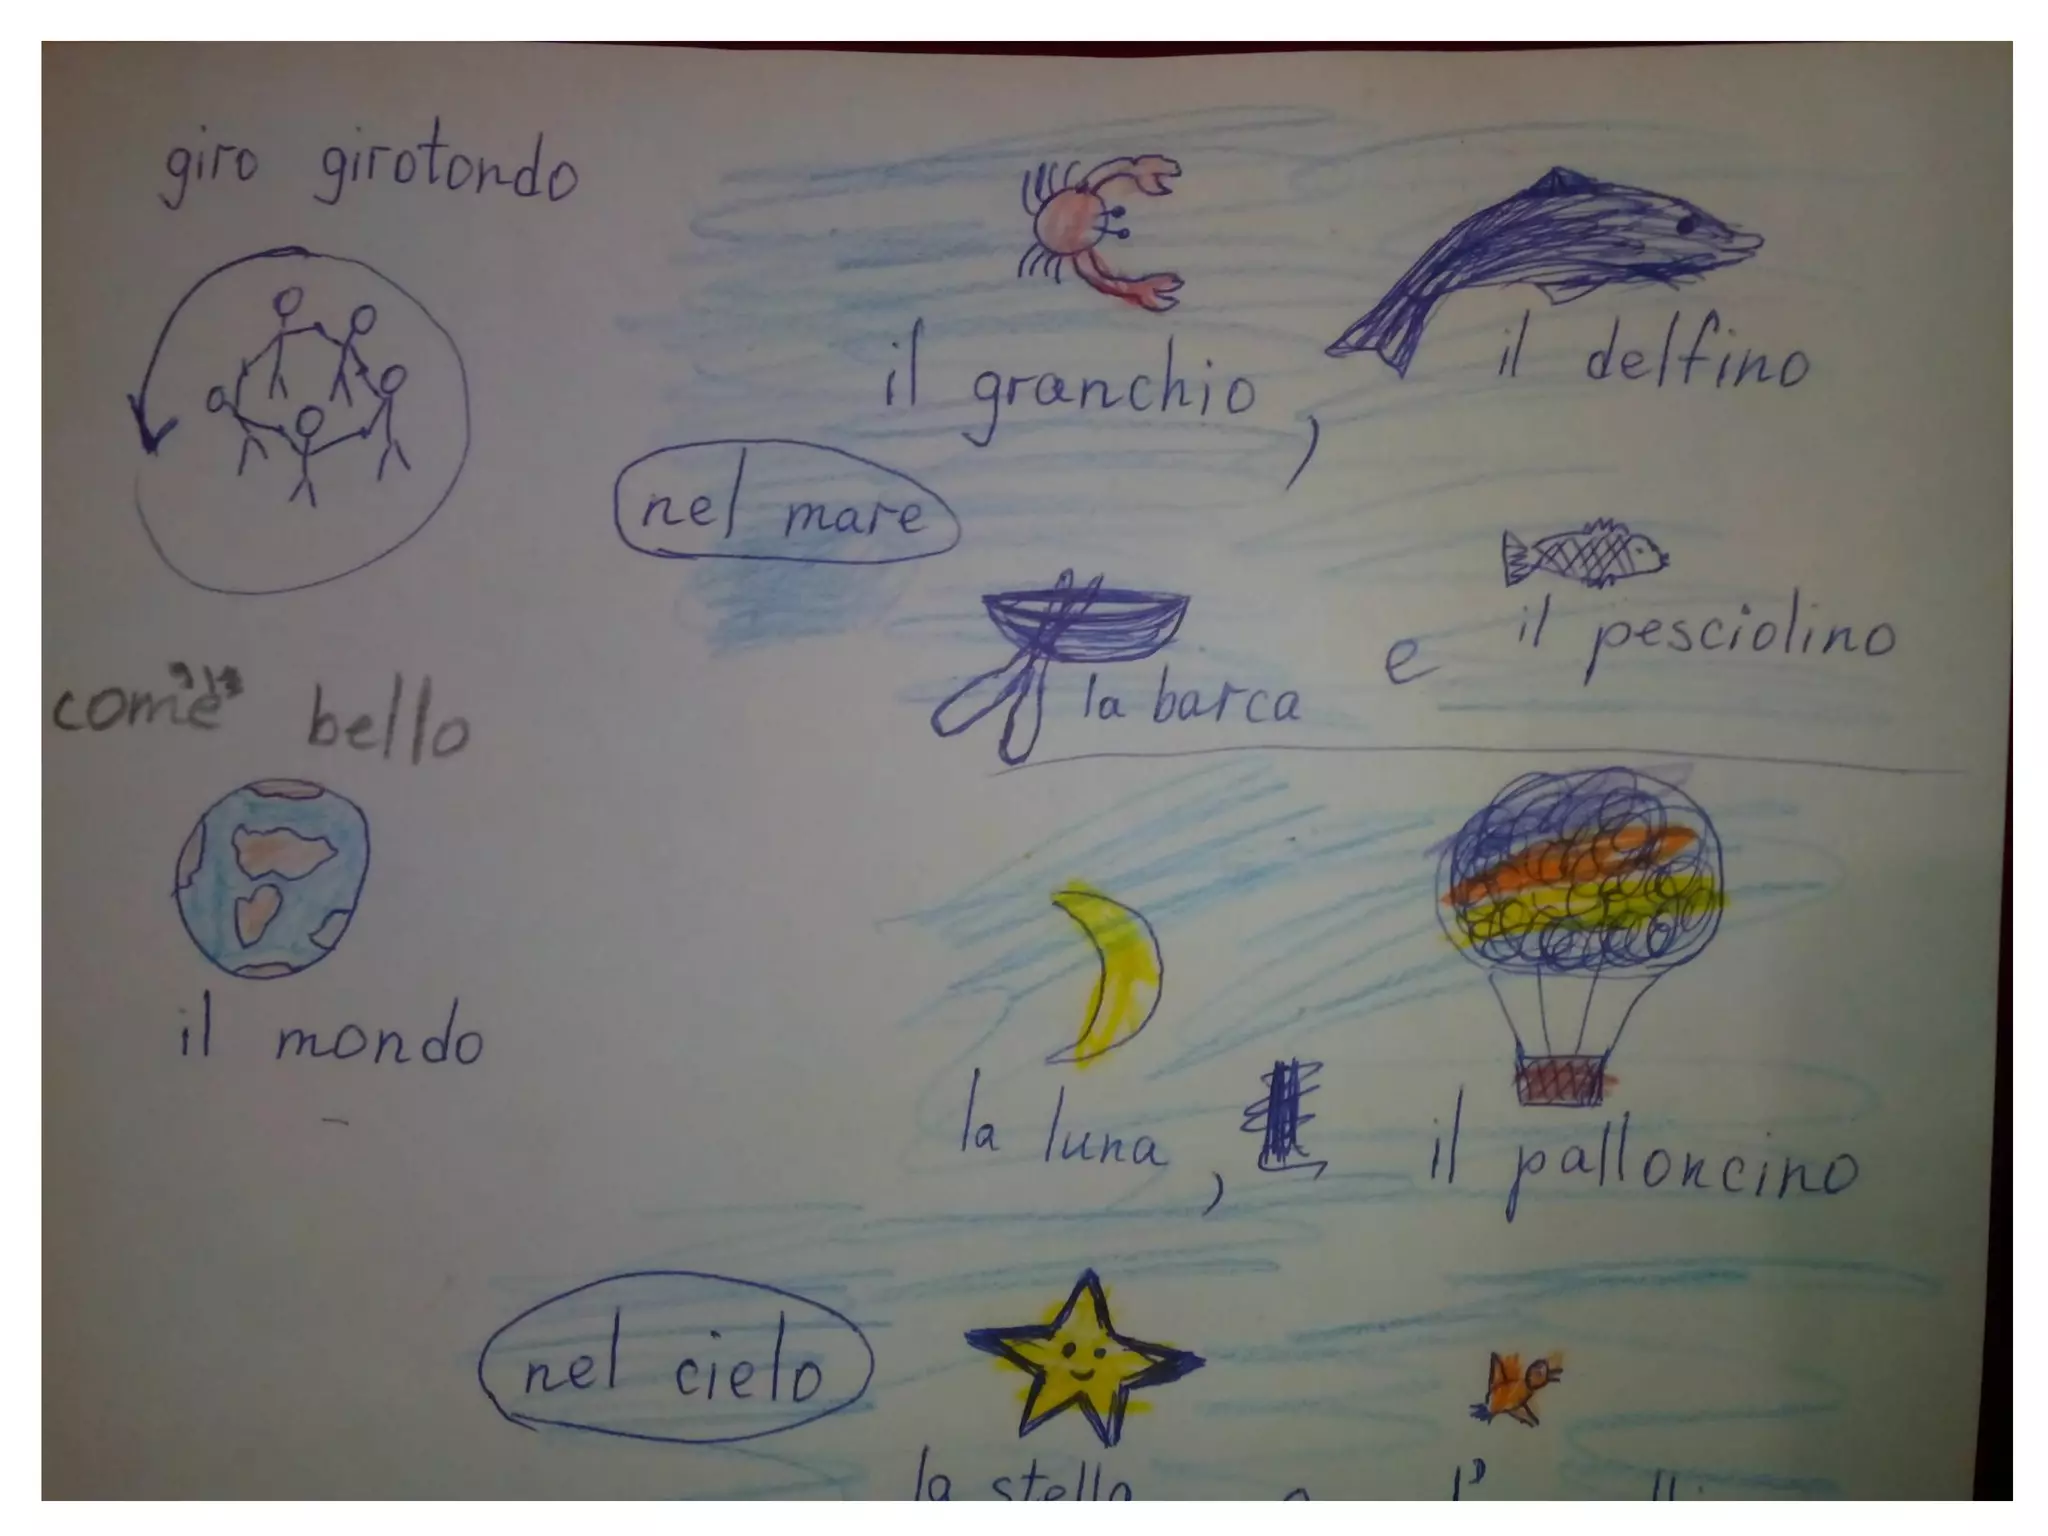 giro girotondo
come bello
il mondo
nel mare
il granchio,
il delfino
la barca
e
il pesciolino
la luna,
il palloncino
nel cielo
la stella
l'